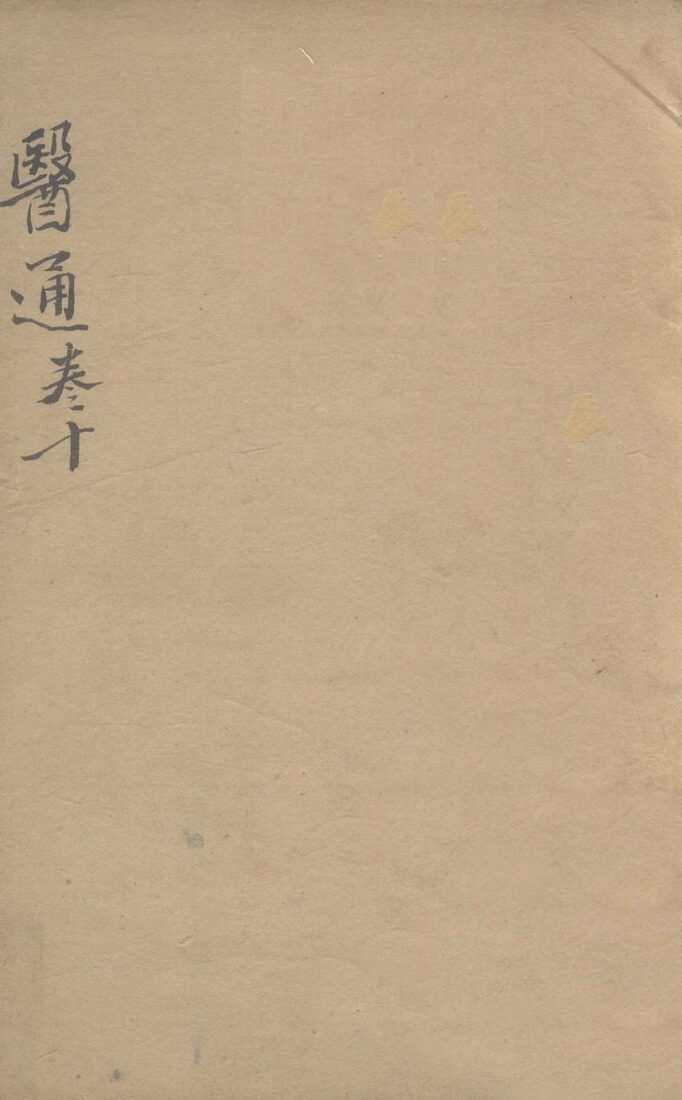 醫通卷十